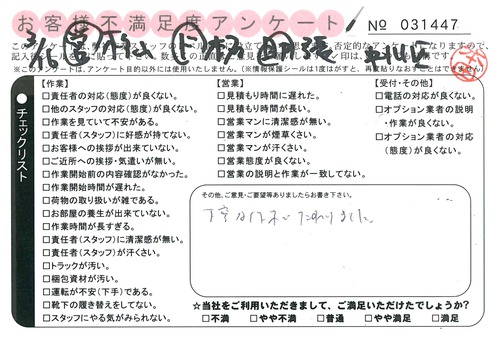 お客様不満足度アンケート
№ 031447
チェックリスト
【作業】
□責任者の対応(態度)が良くない。
□他のスタッフの対応(態度)が良くない。
□作業を見ていて不安がある。
□責任者(スタッフ)に好感が持てない。
□お客様への挨拶が出来ていない。
□ご近所への挨拶・気遣いが無い。
□作業開始前の内容確認がなかった。
□作業開始時間が遅れた。
□荷物の取り扱いが雑である。
□お部屋の養生が出来ていない。
□作業時間が長すぎる。
□責任者(スタッフ)に清潔感が無い。
□責任者(スタッフ)が汗くさい。
□トラックが汚い。
□梱包資材が汚い。
□運転が不安(下手)である。
□靴下の履き替えをしてない。
□スタッフにやる気がみられない。
【営業】
□見積もり時間に遅れた。
□見積もり時間が長い。
□営業マンに清潔感が無い。
□営業マンが煙草くさい。
□営業マンが汗くさい。
□営業態度が良くない。
□営業の説明と作業が一致してない。
【受付・その他】
□電話の対応が良くない。
□オプション業者の説明
・作業が良くない。
□オプション業者の対応
(態度)が良くない。
その他、ご意見・ご要望等ありましたらお書き下さい。
☆当社をご利用いただきまして、ご満足いただけたでしょうか?
□不満 □やや不満 □普通 □やや満足 □満足